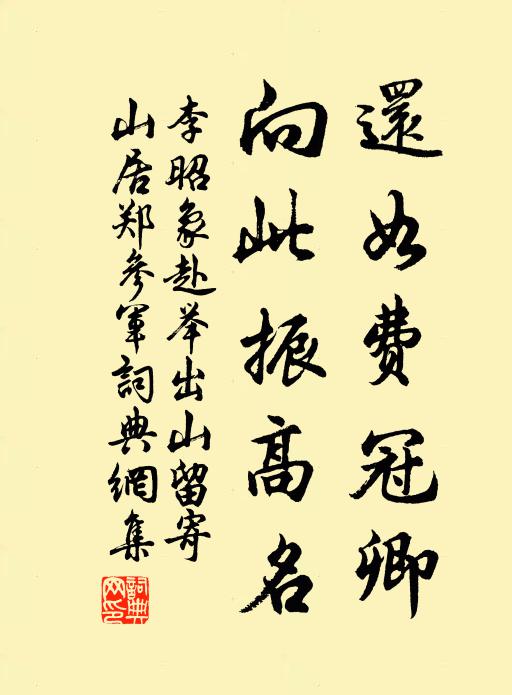 還如費冠卿
向此振高名
李昭象赴举出山留寄
山居郑參軍詞典網集
詞典網印